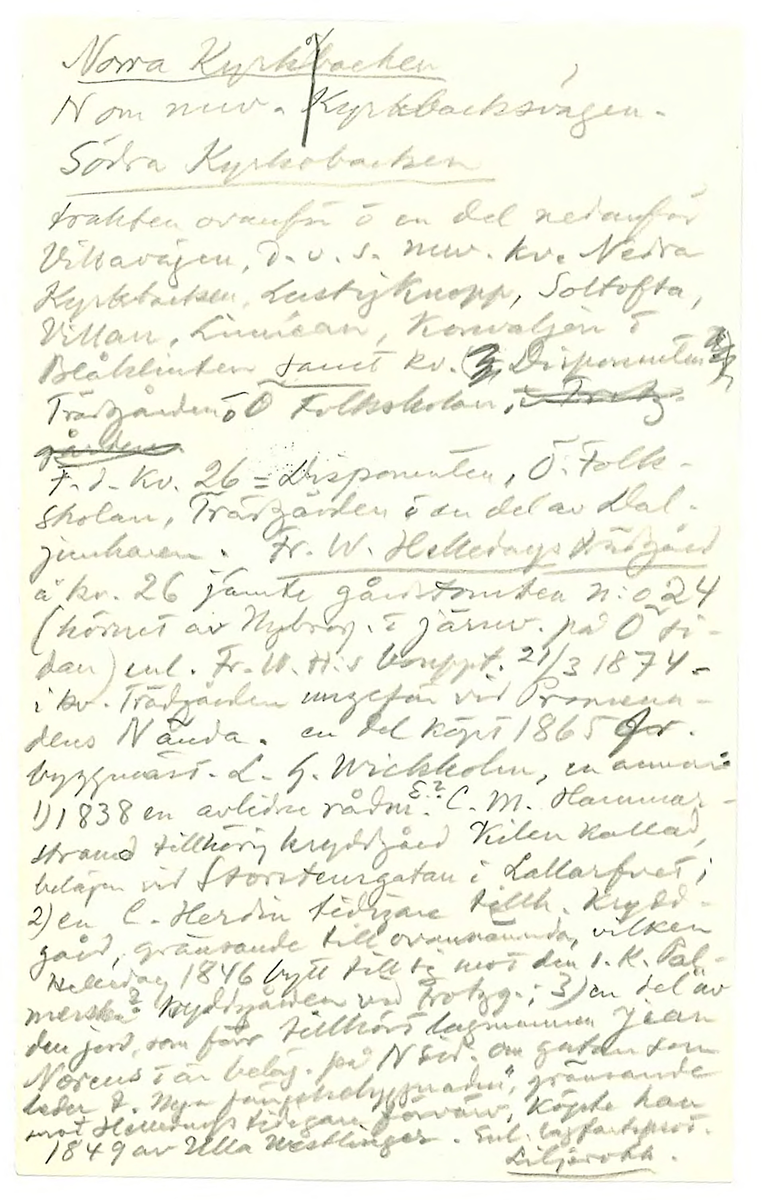 Norra Kyrkbacken
N om nuv. Kyrkbacksvägen.
Södra Kyrkobacken
trakten ovanför o en del nedanför
Villavägen, d.v.s. nuv. kv. Nedra
Kyrkbacken, Lustigknopp, Soltofta,
Villan, Linnéan, Konvaljen o
Blåklinten samt kv. Disponenten
Trädgården, o Ö Folkskolan,
F.d. Kv. 26 = Disponenten, Ö. Folk-
skolan, Trädgården o en del av Dal-
junkaren. Fr. W. Helledays trädgård
å kv. 26 jämte gårdstomten n:o 24
(hörnet av Nybrog. o Järnv. på Ö si-
dan) enl. Fr. W. H:s bouppt. 21/3 1874 -
i kv. Trädgården ungefär vid Promena-
dens Nända. en del köpt 1865
byggmäst. L. G. Wickholm, en annan
1) 1838 en avlidne rådm. C. M. Hammar-
strand tillhörig kryddgård Kilen kallad,
belägen vid Storstensgatan i Lallarfvet;
2) en C. Herdin tidigare tillh. Krydd-
gård, gränsande till ovannämnda, vilken
Helleday 1846 bytt till sig mot den s.k. Pal-
merska? kryddgården vid Trotzg.; 3) en del av
den jord, som förr tillhört lagmannen Jean
Noreus o är beläg. på N sid. om gatan som
leder t. Nya fängelsebyggnaden, gränsande
mot Helledays tidigare förvärv, köpte han
1849 av Ulla Westlinger. Enl. lagfartsprot.
Liljeroth.